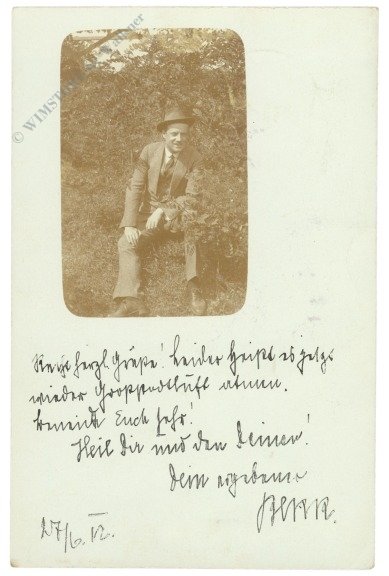 © WIMSTADT Wagner
herzl. Grüße! Leider heißt es jetzt
wieder Großstadtluft atmen.
beneide Euch sehr!
Heil Dir und den Deinen!
Dein ergebener
27/6. 12.